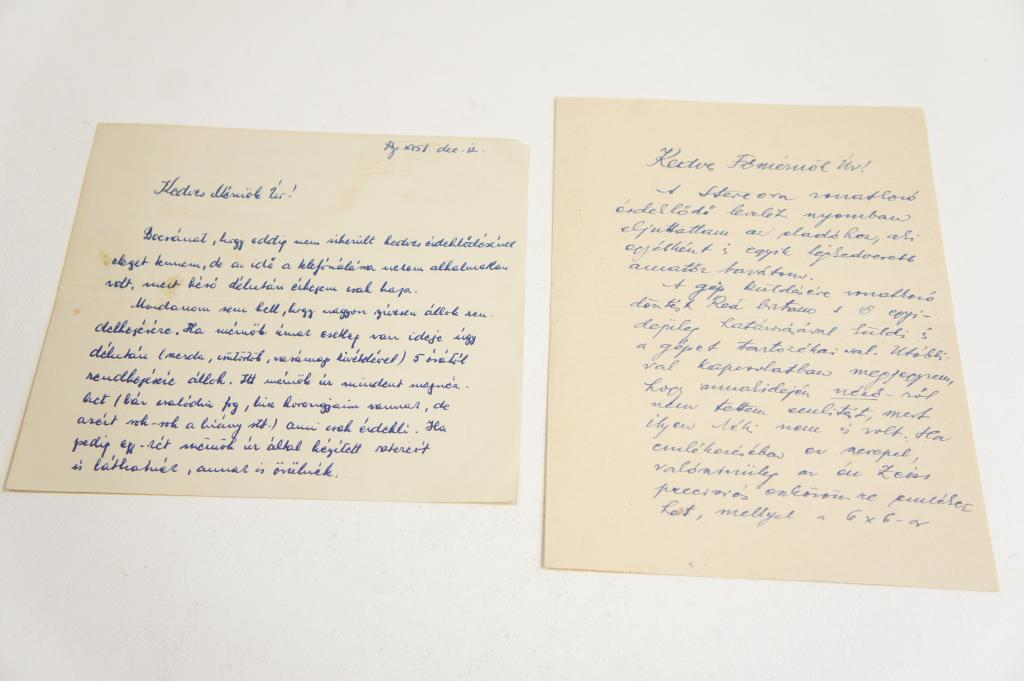 Bp. 1958. dec. 12.
Kedves Mérnök Úr!
Bocsánat, hogy eddig nem sikerült kedves érdeklődésének
eleget tennem, de az idő a telefonálásra nekem alkalmatlan
volt, mert késő délután érkezem csak haza.
Mondanom sem kell, hogy nagyon szívesen állok ren-
delkezésére. Ha mérnök úrnak esetleg van ideje úgy
délután (szerda, csütörtök, vasárnap kivételével) 5 órától
rendelkezésére állok. Itt mérnök úr mindent megnéz-
het (bár csalódni fog, hisz anyagjaim vannak, de
azért sok-sok a hiány stt.) ami csak érdekli. Ha
pedig egy-két mérnök úr által készített sztereót
is láthatnék, annak is örülnék.
Kedve Főmérnök Úr!
A Stereora vonatkozó
érdeklődő levelét nyomban
eljuttattam az eladóhoz, aki
egyébként is egyik legkedvesebb
amatőr barátom.
A gép küldésére vonatkozó
döntést Reá bíztam s ő egyi-
dejűleg határozóával küldi is
a gépet tartozékaival. Utóbbi-
val kapcsolatban megjegyzem,
hogy annakidején néző-ről
nem tettem említést, mert
ilyen Néki nem is volt. Ha
emlékezésében ez szerepel,
valószínűleg az én Zeiss
preciziós eszközömre emlékez-
het, mellyel a 6x6-os